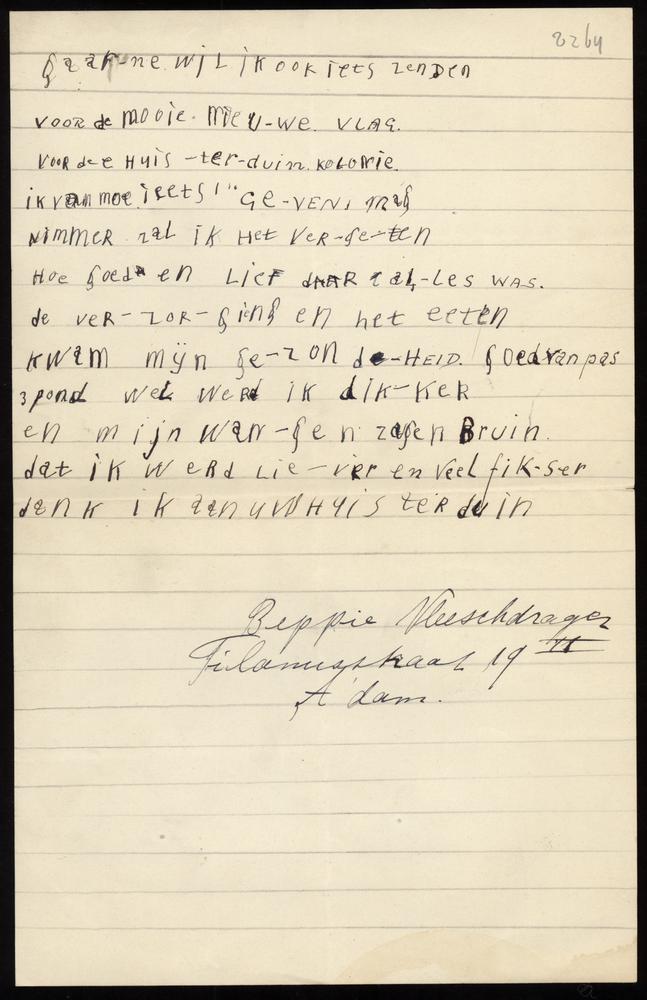 2264
gaar-ne wil ik ook iets zenden
voor de mooie. nieu-we. vlag.
voor dee Huis -ter-duin. kolonie.
ik van moe. ieets! " ge-ven, mag
nimmer zal ik Het ver-ge-ten
Hoe goed en Lief daar al-les was.
de ver-zor-ging en het eeten
kwam mijn ge-zon de-Heid. goed van pas
3 pond wel werd ik dik-ker
en mijn wan-gen zagen Bruin.
dat ik werd Lie-ver en veel fik-ser
dank ik aan uw Huis ter duin
Beppie Vleeschdrager
19 II
A'dam.